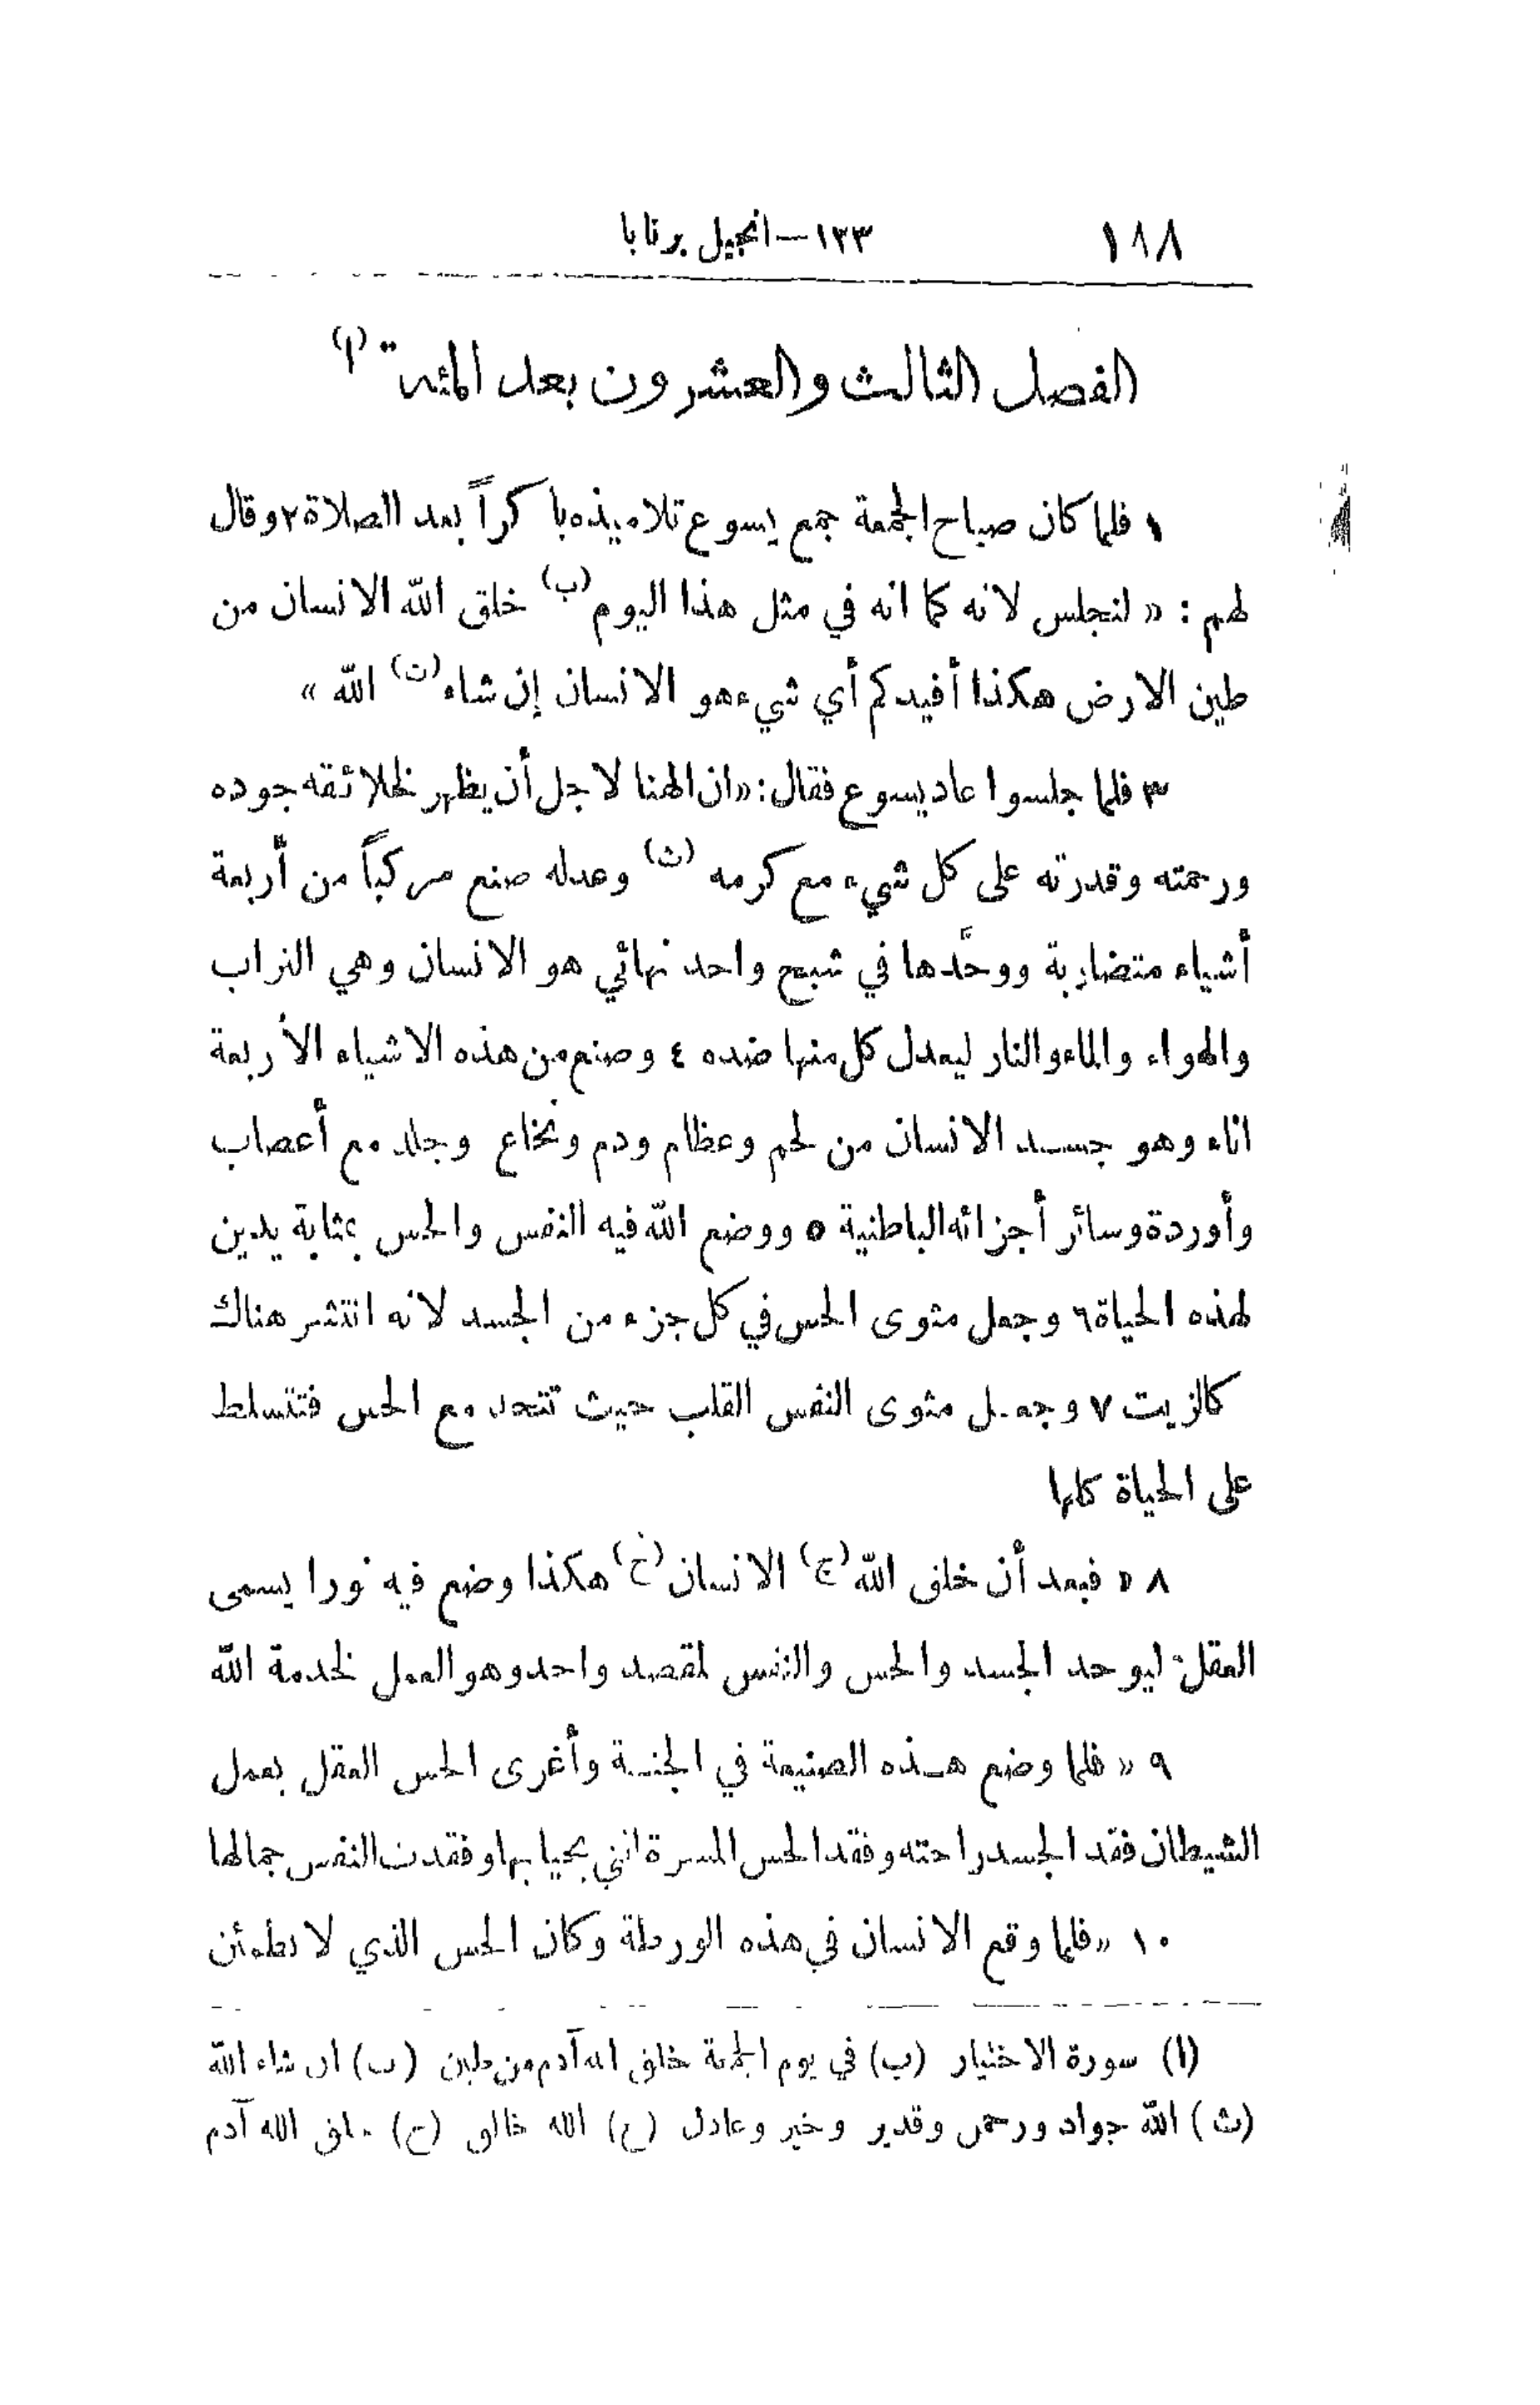 ١٨٨ ١٢٣—انجيل برنابا
الفصل الثالث والعشرون بعد المئة (ا)
١ فلما كان صباح الجمعة جمع يسوع تلاميذه باكراً بعد الصلاة ٢ وقال
لهم : « لنجلس لانه كما انه في مثل هذا اليوم (ب) خلق الله الانسان من
طين الارض هكذا أفيدكم أي شيء هو الانسان إن شاء (ت) الله »
٣ فلما جلسوا عاد يسوع فقال : « ان الهنا لاجل أن يظهر لخلائقه جوده
ورحمته وقدرته على كل شيء مع كرمه (ث) وعدله صنع مركباً من أربعة
أشياء متضاربة ووحَّدها في شبح واحد نهائي هو الانسان وهي التراب
والهواء والماء والنار ليعدل كل منها ضده ٤ وصنع من هذه الاشياء الأربعة
اناء وهو جسد الانسان من لحم وعظام ودم ونخاع وجلد مع أعصاب
وأوردة وسائر أجزائه الباطنية ٥ ووضع الله فيه النفس والحس بمثابة يدين
لهذه الحياة ٦ وجعل مثوى الحس في كل جزء من الجسد لانه انتشر هناك
كالزيت ٧ وجعل مثوى النفس القلب حيث تتحد مع الحس فتتسلط
على الحياة كلها
٨ « فبعد أن خلق الله (ج) الانسان (خ) هكذا وضع فيه نورا يسمى
العقل ليوحد الجسد والحس والنفس لمقصد واحد وهو العمل لخدمة الله
٩ « فلما وضع هذه الصنيعة في الجنة وأغرى الحس العقل بعمل
الشيطان فقد الجسد راحته وفقد الحس المسرة التي يحيا بها وفقدت النفس جمالها
١٠ « فلما وقع الانسان في هذه الورطة وكان الحس الذي لا يطمئن
(ا) سورة الاختيار (ب) في يوم الجمعة خلق الله آدم من طين (ت) ان شاء الله
(ث) الله جواد ورحمن وقدير وخير وعادل (ج) الله خالق (ح) خلق الله آدم